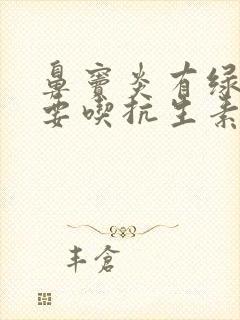 鼻窦炎有绿
要喫抗生素
丰倉